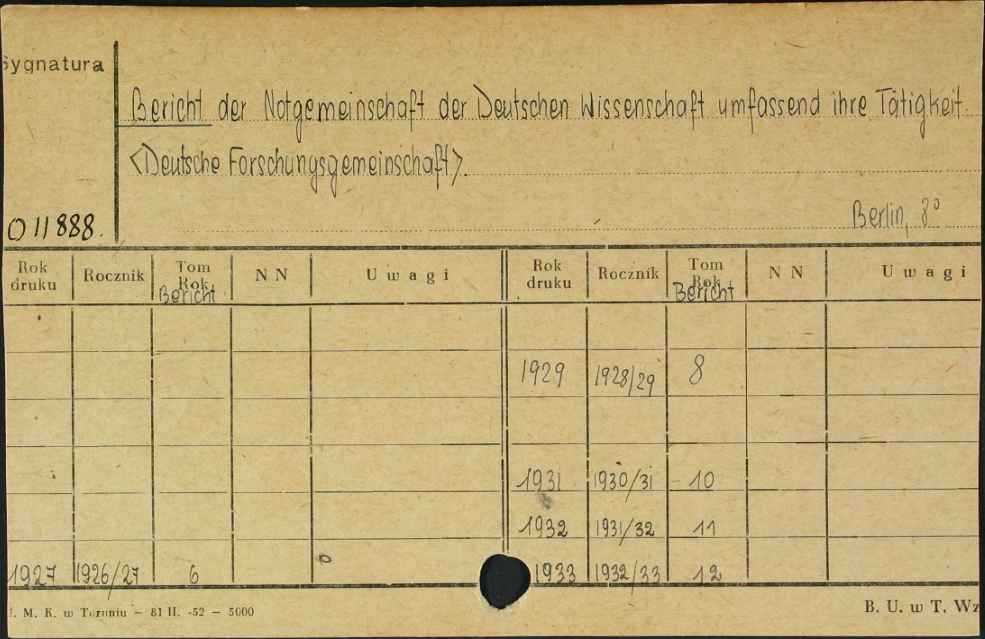 Sygnatura
Bericht der Notgemeinschaft der Deutschen Wissenschaft umfassend ihre Tätigkeit.
<Deutsche Forschungsgemeinschaft>.
O 11888.
Berlin, 8°
Rok druku Rocznik Tom Rok Bericht N N Uwagi Rok druku Rocznik Tom Rok Bericht N N Uwagi
1929 1928/29 8
1931 1930/31 10
1932 1931/32 11
1927 1926/27 6 1933 1932/33 12
M. K. w Toruniu — 81 II. -52 — 5000
B. U. w T. Wz